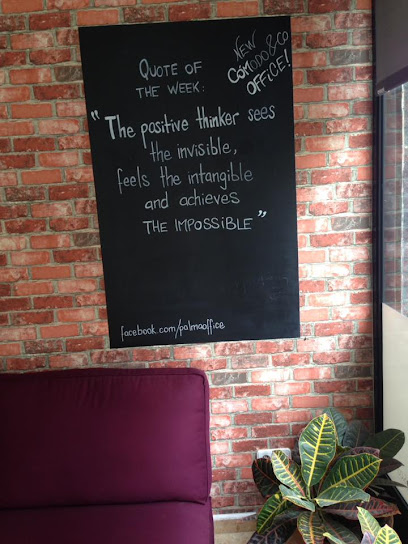 QUOTE OF
THE WEEK:
NEW
COMODO&CO
OFFICE!
"The positive thinker sees
the invisible,
feels the intangible
and achieves
THE IMPOSSIBLE"
facebook.com/palmaoffice